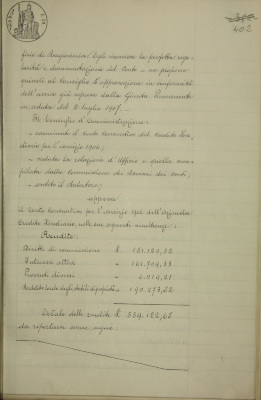 402
ficio di Ragioneria. Egli riconosce la perfetta rego-
larità e dimostrazione del Conto - ne propone
quindi al Consiglio l'approvazione in conformità
dell'avviso già espresso dalla Giunta Permanente
in seduta del luglio 1907.
Il Consiglio d'Amministrazione:
- esaminati il conto consuntivo del Credito Fon-
diario per l'esercizio 1906;
- veduta la relazione d'Ufficio e quella com-
pilata dalla Commissione dei Revisori dei conti;
- sentito il Relatore;
approva
il conto consuntivo per l'esercizio 1906 dell'Azienda
Credito Fondiario, nelle sue seguenti risultanze:
Rendite:
Diritti di commissione £
Interessi attivi "
Proventi diversi "
Reddito lordo degli stabili di proprietà " 190.073,22
Totale delle rendite £
da ripartirsi come segue: